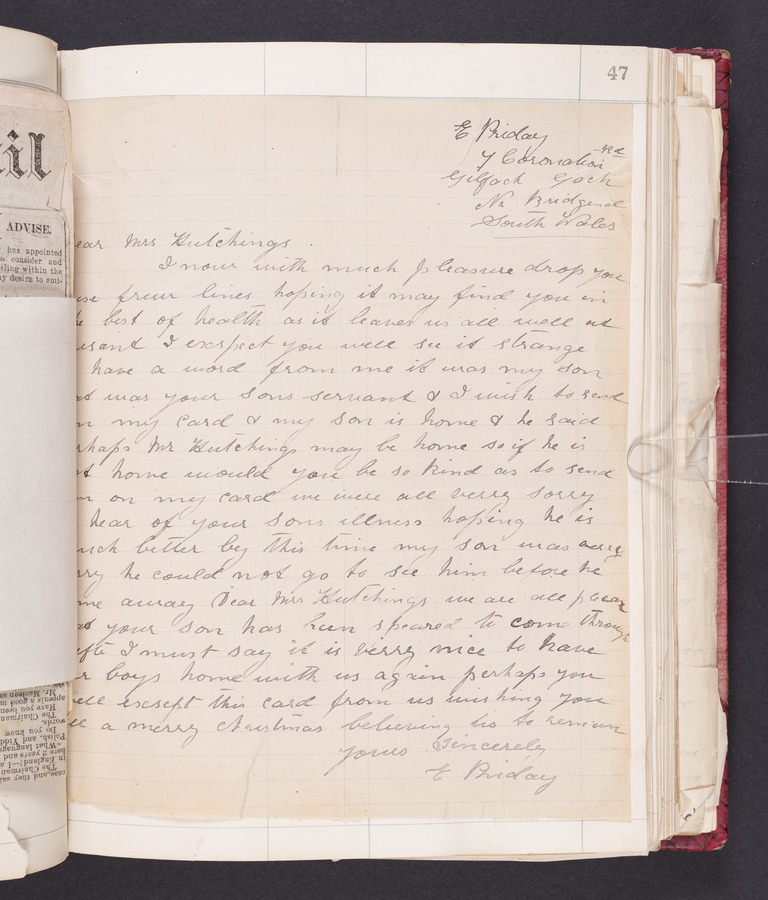 47
E Priday
7 Coronation Rd
Gilfach Goch
Nr Bridgend
South Wales
ear Mrs Hutchings.
I now with much pleasure drop you
ese freur lines hoping it may find you in
e best of health as it leaves us all well at
esant I exspect you well see it strange
have a word from me it was my son
at was your sons servant & I wish to send
m my card & my son is home & he said
rhaps Mr Hutchings may be home so if he is
t home would you be so kind as to send
m on my card we were all verry sorry
hear of your sons illness hoping he is
uch better by this time my son was verry
rry he could not go to see him before he
me away Dear Mrs Hutchings we are all
at your son has bun speared to come through
I must say it is verry nice to have
r boys home with us again perhaps you
ell exsept this card from us wishing you
ll a merry christmas believing us to remain
yours Sincerely
E Priday
il
ADVISE.
has appointed
o consider and
tling within the
ay desire to emi-
case and they sai
The Chairman
in England?—I a
here 2 years and
"What language
Polish, and Yidd
Do you know
words.
The Chairman
Have you been
appeals a good m
Mr. Macleen as